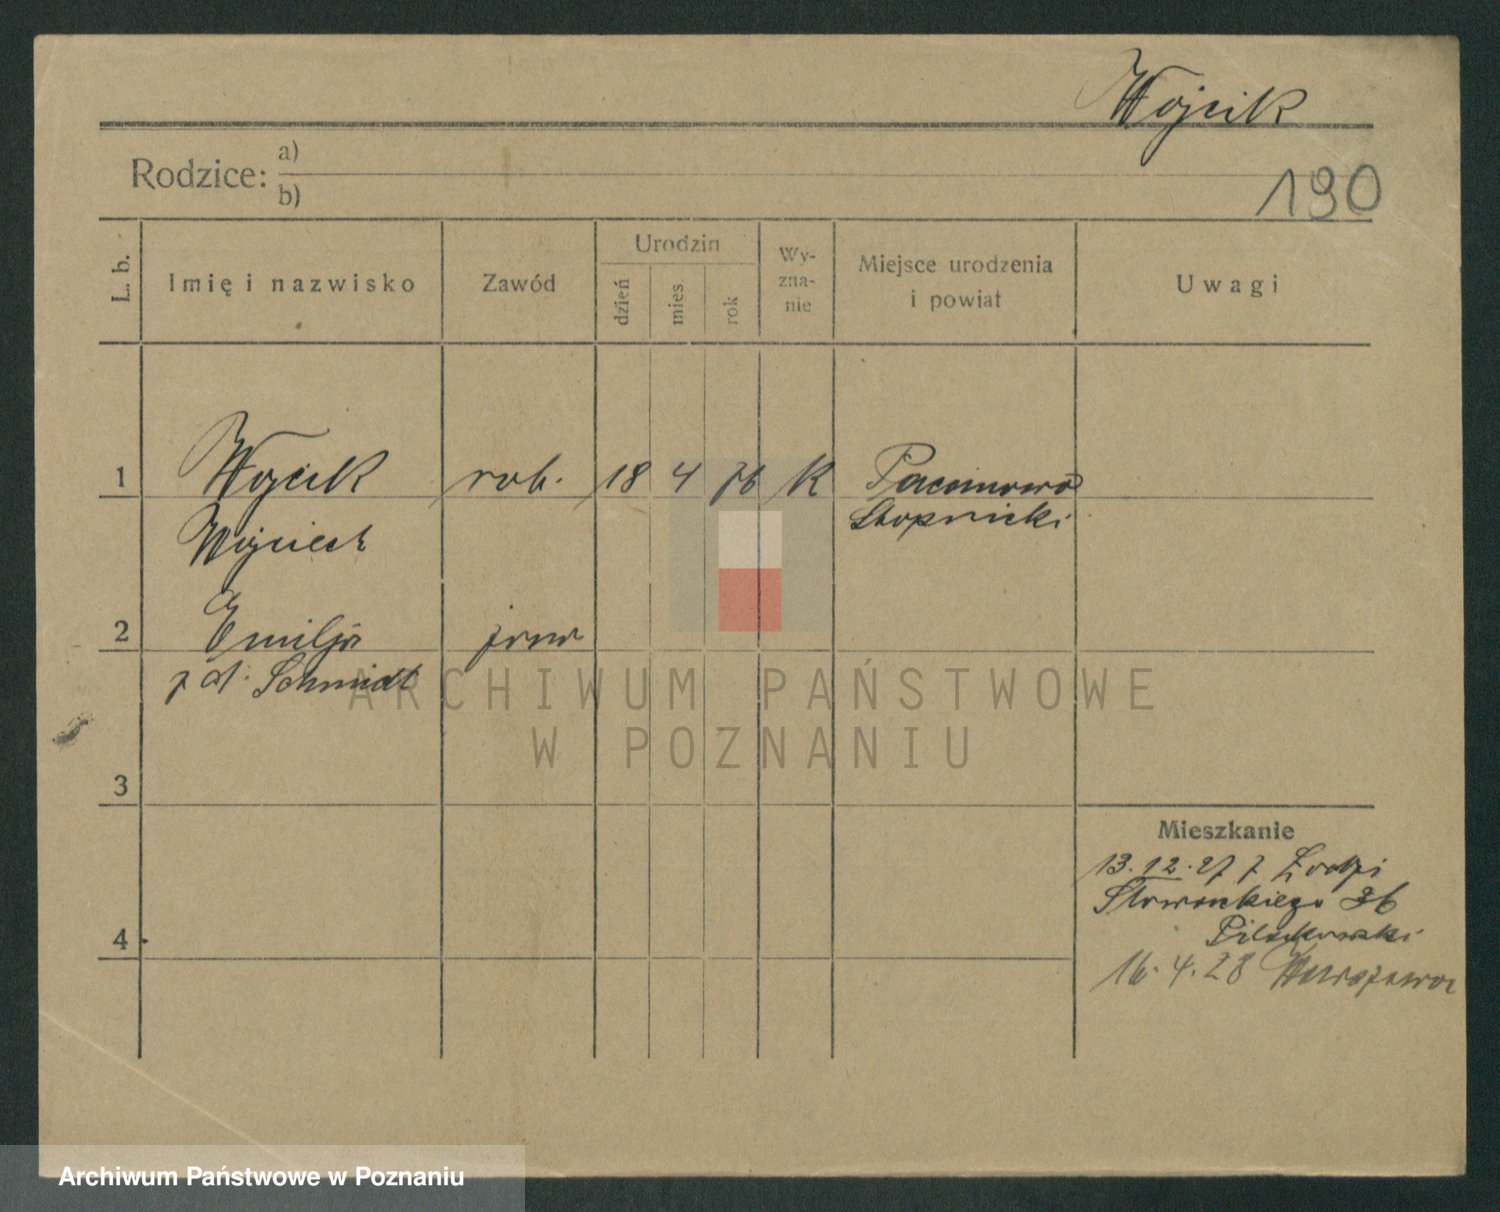 Wojcik
Rodzice: a)
b)
190
L. b. Imię i nazwisko Zawód Urodzin dzień mies rok Wy-zna-nie Miejsce urodzenia i powiat Uwagi
1 Wojcik rob. 18 4 76 K Pacanowo
Wojciech Stopnicki
2 Emilja żona
z d. Schmidt
ARCHIWUM PAŃSTWOWE
W POZNANIU
3
Mieszkanie
13.12.27 z Łodzi
Słowackiego 36
4
16.4.28 Warszawa
Archiwum Państwowe w Poznaniu